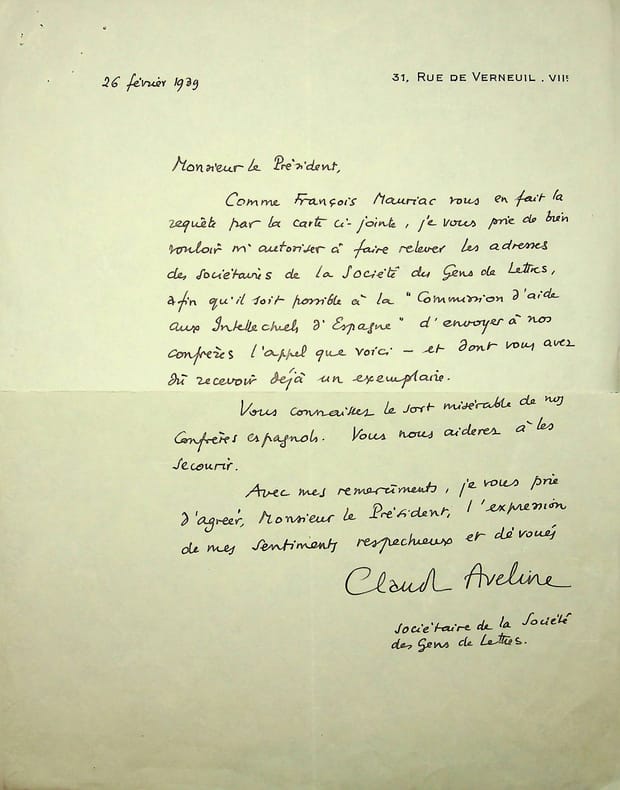 26 février 1939
31, RUE DE VERNEUIL . VIIe
Monsieur le Président,
Comme François Mauriac vous en fait la
requête par la carte ci-jointe, je vous prie de bien
vouloir m'autoriser à faire relever les adresses
des Sociétaires de la Société des Gens de Lettres,
afin qu'il soit possible à la "Commission d'aide
aux Intellectuels d'Espagne" d'envoyer à nos
confrères l'appel que voici — et dont vous avez
dû recevoir déjà un exemplaire.
Vous connaissez le sort misérable de nos
confrères espagnols. Vous nous aiderez à les
secourir.
Avec mes remerciements, je vous prie
d'agréer, Monsieur le Président, l'expression
de mes sentiments respectueux et dévoués
Claude Aveline
Sociétaire de la Société
des Gens de Lettres.